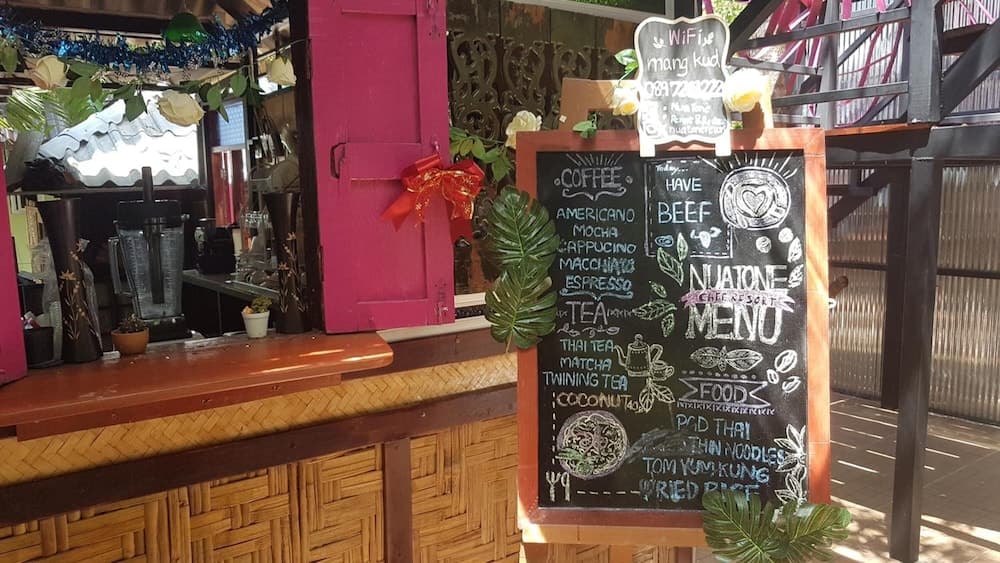 WiFi
mang kud
COFFEE
AMERICANO
MOCHA
CAPPUCINO
MACCHIATO
ESPRESSO
TEA
THAI TEA
MATCHA
TWINING TEA
COCONUT
Today...
HAVE
BEEF
NUATONE
MENU
FOOD
PAD THAI
THIN NOODLES
TOM YUM KUNG
FRIED RICE